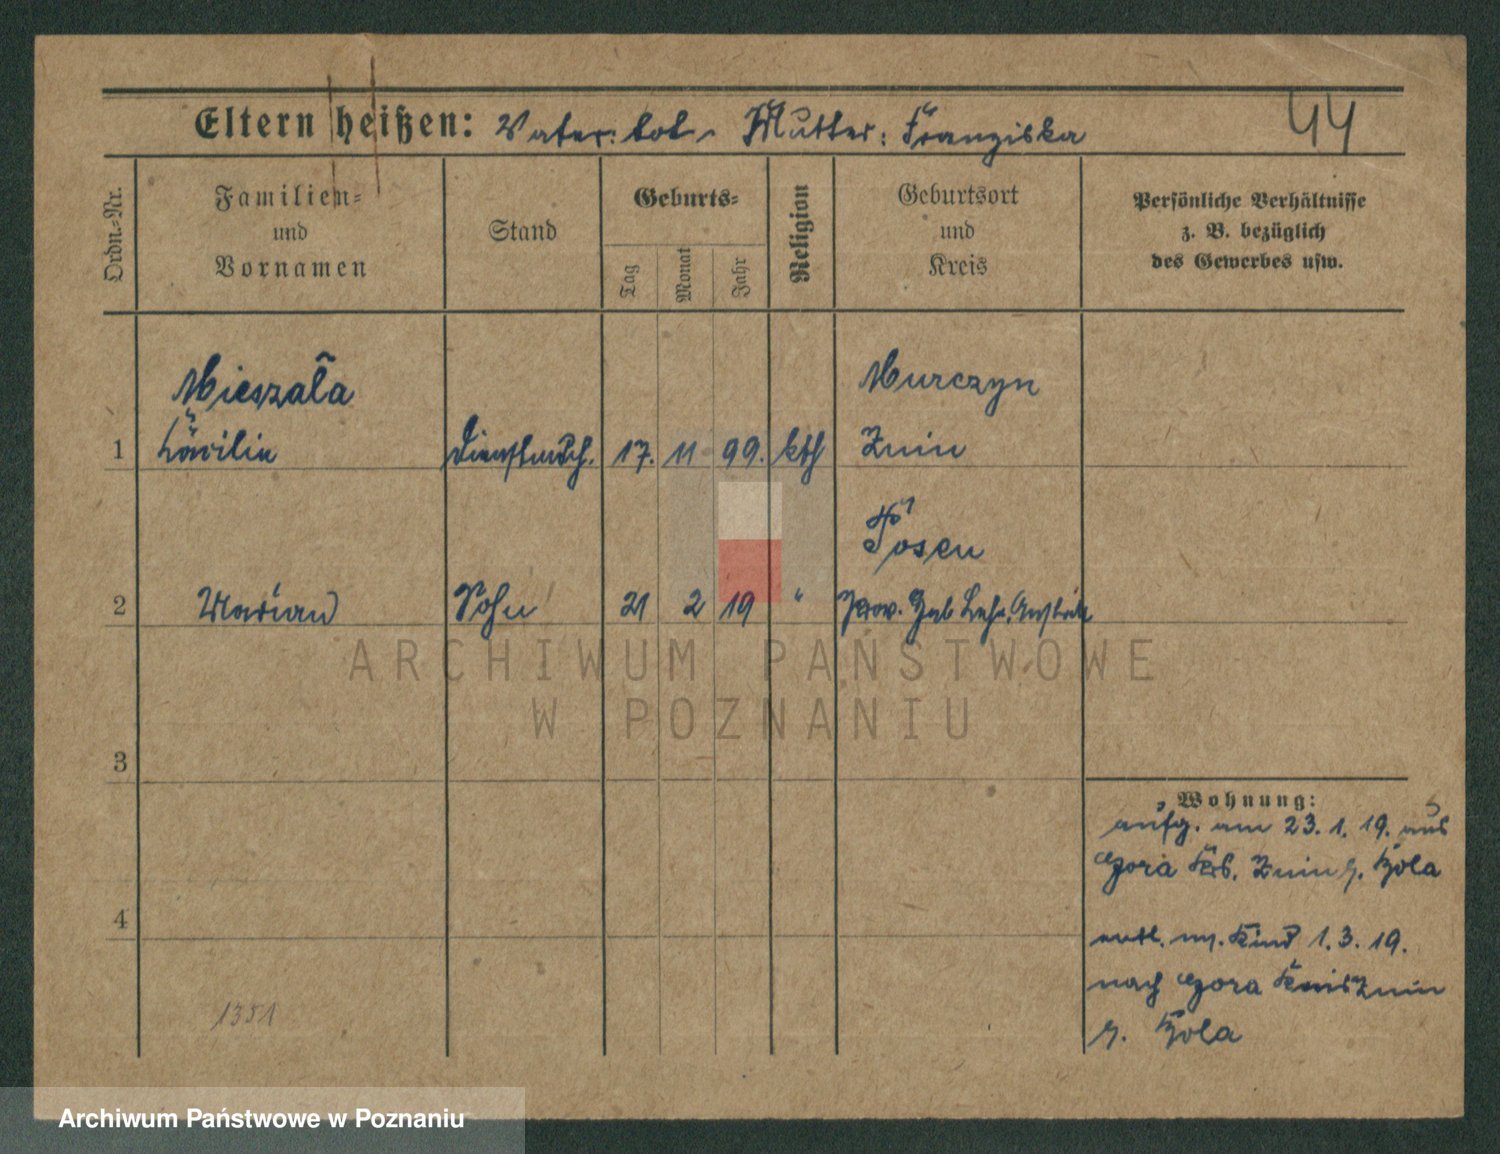 Eltern heißen: Vater: tot. Mutter: Franziska
44
Ordn.-Nr.
Familien-
und
Vornamen
Stand
Geburts-
Tag
Monat
Jahr
Religion
Geburtsort
und
Kreis
Persönliche Verhältnisse
z. B. bezüglich
des Gewerbes usw.
Mieszała
Murczyn
1 Dienstmdch. 17. 11 99. kth Znin
Posen
2 Marian Sohn 21 2 19 " Prov. Heb Lehr. Anstalt
ARCHIWUM PAŃSTWOWE
W POZNANIU
3
Wohnung:
aufg. am 23. 1. 19. aus
Gora Krs. Znin
4
entl. m. Kind 1. 3. 19.
nach Gora Kreis Znin
1351
Archiwum Państwowe w Poznaniu